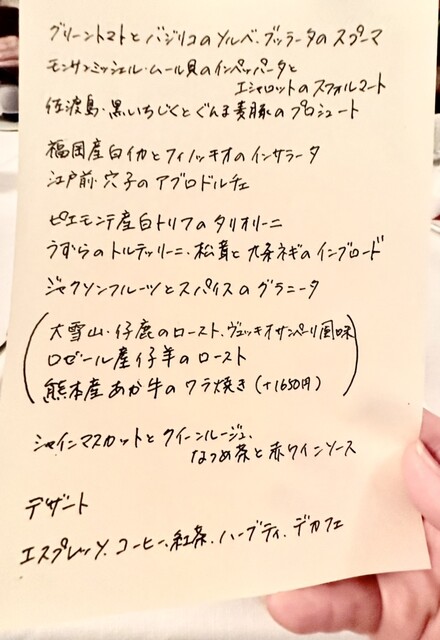 グリーントマトとバジリコのソルベ、ブッラータのスプーマ
モンサンミッシェル・ムール貝のインペパータと
エシャロットのスフォルマート
佐渡島・黒いちじくとぐんま麦豚のプロシュート
福岡産白イカとフィノッキオのインサラータ
江戸前・穴子のアグロドルチェ
ピエモンテ産白トリフのタリオリーニ
うずらのトルテッリーニ、松茸と九条ネギのインブロード
ジャクソンフルーツとスパイスのグラニータ
大雪山・仔鹿のロースト、ヴェッキオサンペーリ風味
ロゼール産仔羊のロースト
熊本産あか牛のワラ焼き(+1650円)
シャインマスカットとクイーンルージュ、
なつめ茶と赤ワインソース
デザート
エスプレッソ、コーヒー、紅茶、ハーブティ、デカフェ